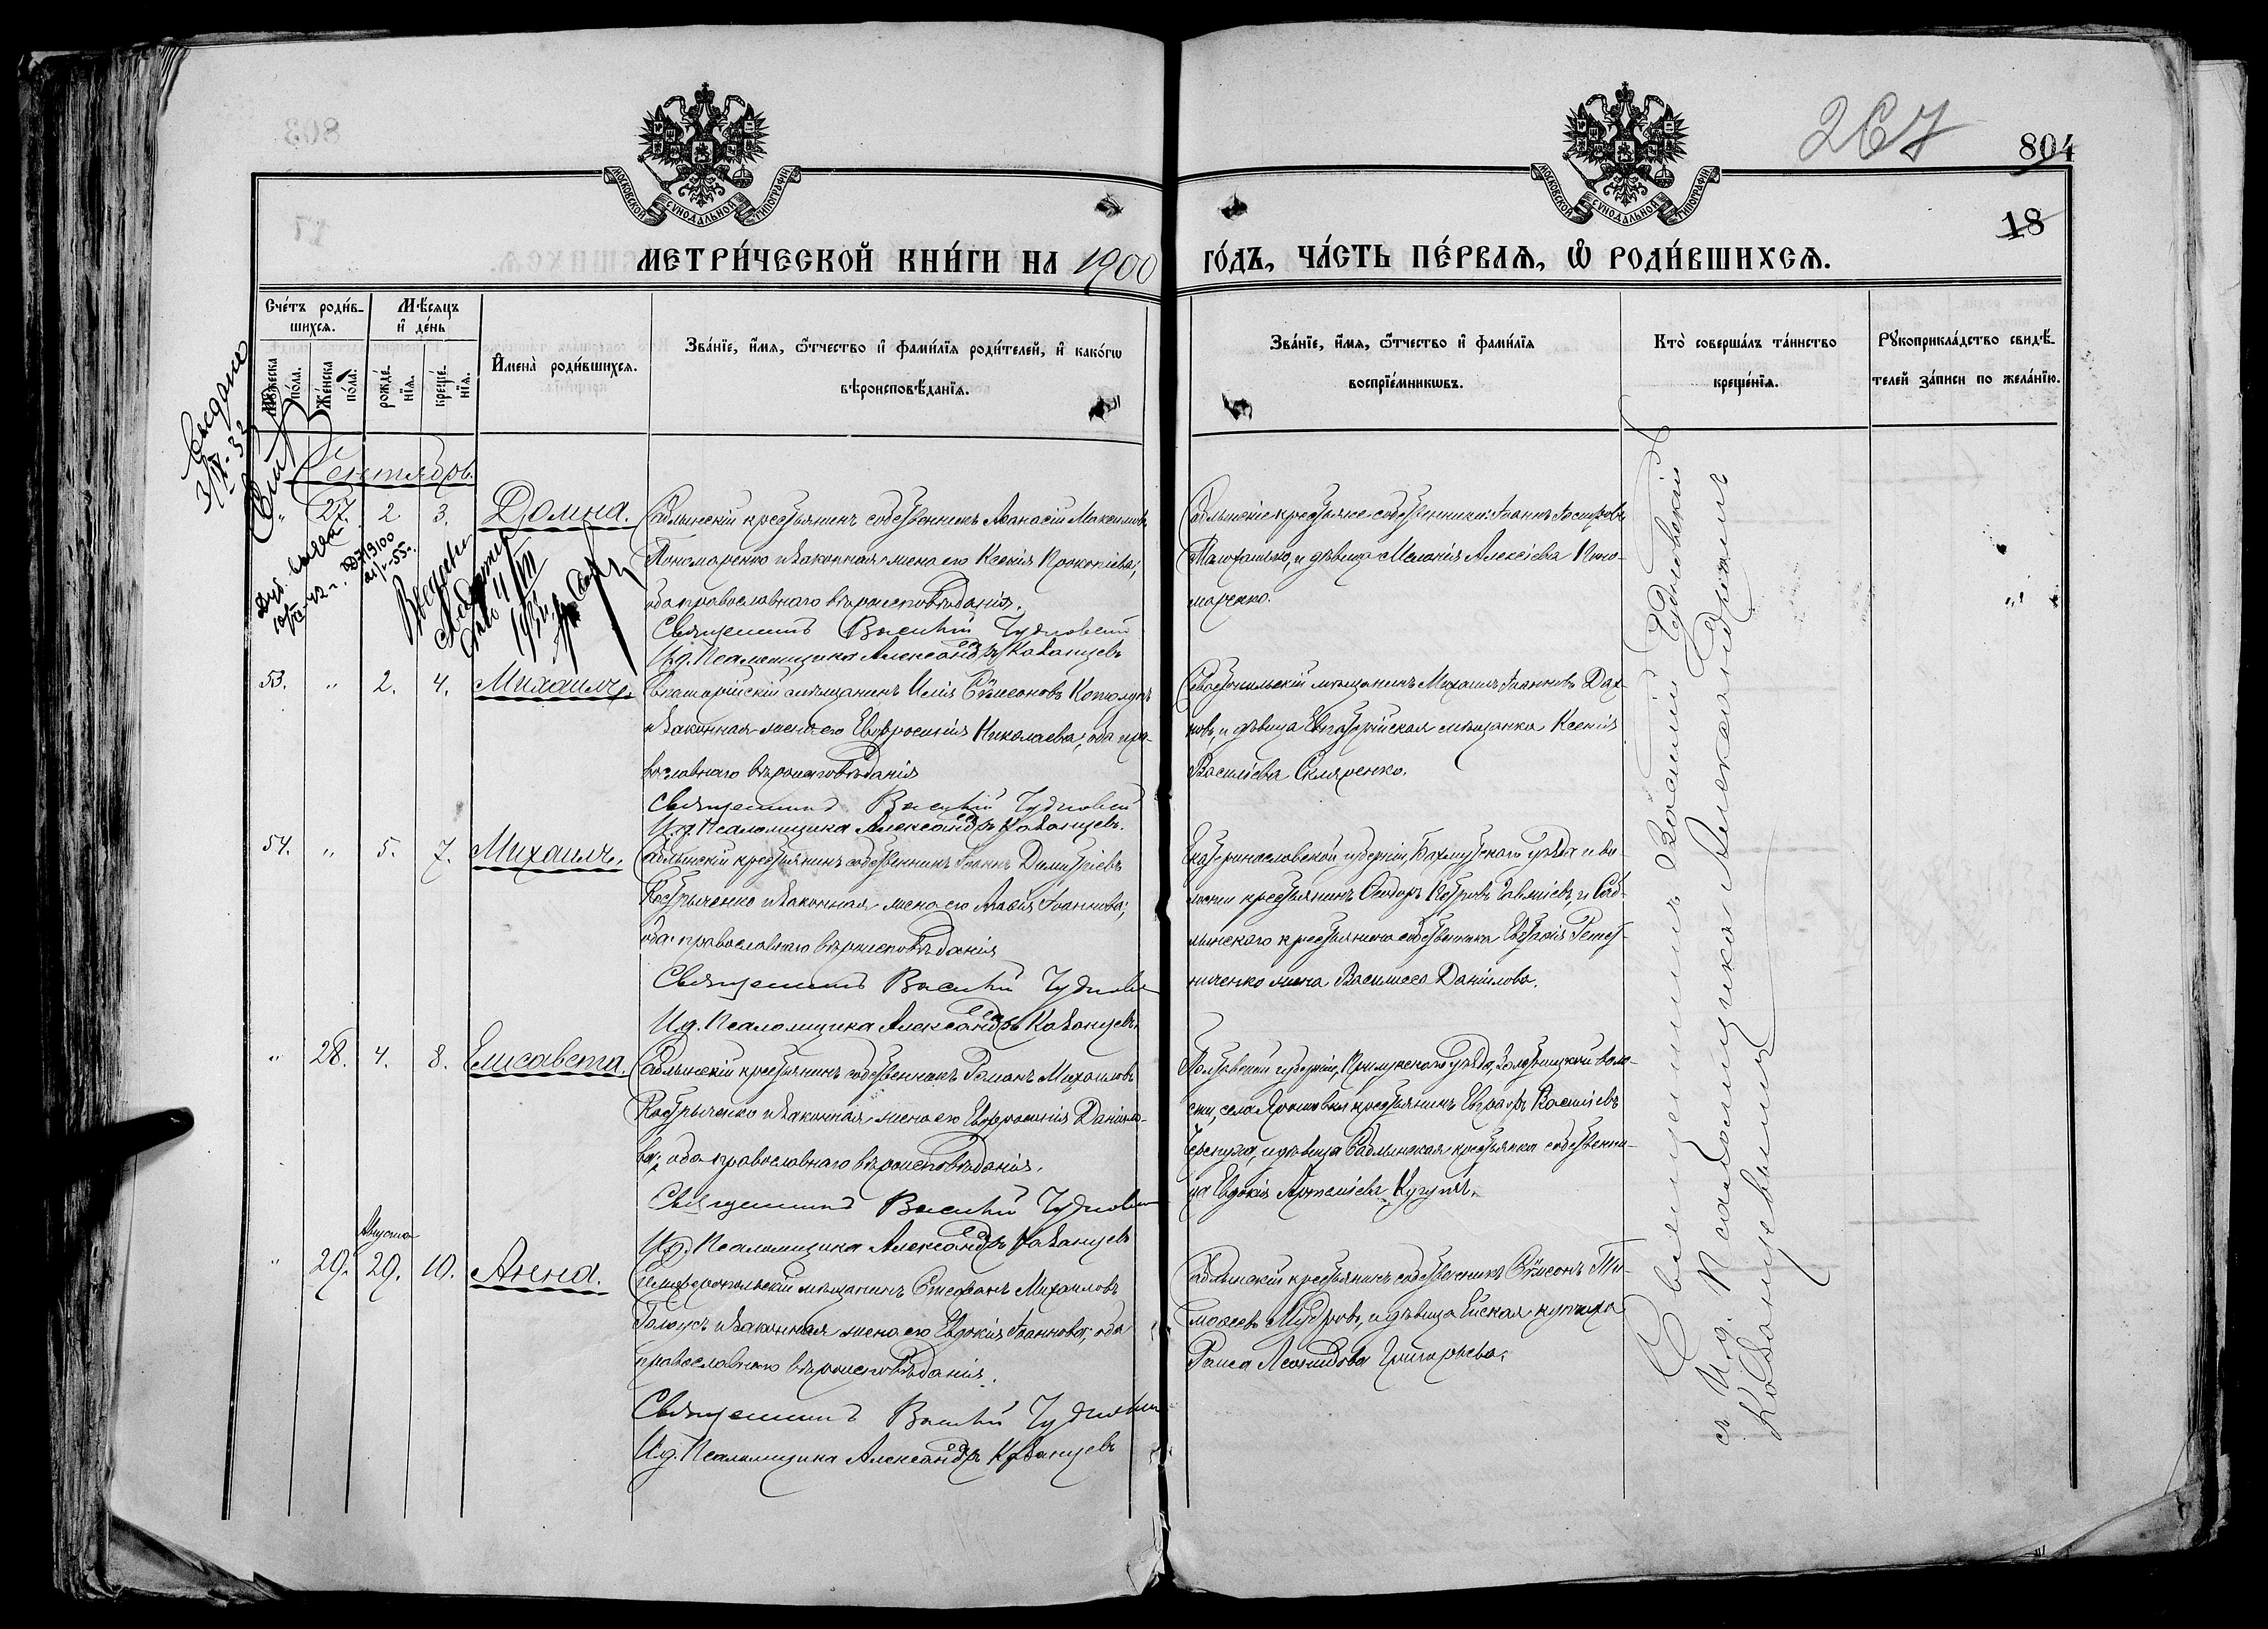 267
804
18
МОСКОВСКОЙ СѴНОДАЛЬНОЙ ТИПОГРАФІИ
МОСКОВСКОЙ СѴНОДАЛЬНОЙ ТИПОГРАФІИ
МЕТРИ́ЧЕСКОЙ КНИ́ГИ НА 1900
ГО́ДЪ, ЧА́СТЬ ПЕ́РВАѦ, Ѡ РОДИ́ВШИХСѦ.
Сче́тъ роди́в-
шихсѧ.
Мѣ́сѧцъ
и҆ де́нь
Мꙋ́жеска по́ла.
Же́нска по́ла.
рожде́нїѧ.
креще́нїѧ.
И҆мена̀ роди́вшихсѧ.
Зва́нїе, и҆́мѧ, ѻ҆́тчество и҆ фами́лїѧ роди́телей, и҆ како́гѡ
вѣроисповѣ́данїѧ.
Зва́нїе, и҆́мѧ, ѻ҆́тчество и҆ фами́лїѧ
воспрїе́мникѡвъ.
Кто̀ соверша́лъ та́инство
креще́нїѧ.
Рꙋкоприкла́дство свидѣ́-
телей за́писи по жела́нїю.
Выдано
3/IX-33
Сентябрь.
" 27. 2 3. Домна.
Саблынскій крестьянинъ собственникъ Аѳанасій Максимовъ
Пономаренко и законная жена его Ксенія Прокопіева,
оба православнаго вѣроисповѣданія.
Священникъ Василій Чудновскій
И.д. Псаломщика Александръ Казанцевъ
Саблынскіе крестьяне собственники: Іоаннъ
и дѣвица Меланія Алексіева Поно-
маренко.
53. " 2. 4. Михаилъ.
Евпаторійскій мѣщанинъ Илія Сѵмеоновъ
и законная жена его Евфросинія Николаева, оба пра-
вославнаго вѣроисповѣданія
Священникъ Василій Чудновскій
И.д. Псаломщика Александръ Казанцевъ.
Севастопильскій мѣщанинъ Михаилъ Іоанновъ Дах-
новъ, и дѣвица Евпаторійская мѣщанка Ксенія
Василіева Скляренко.
54. " 5. 7. Михаилъ.
Саблынскій крестьянинъ собственникъ Іоаннъ Димитріевъ
Костыченко и законная жена его Іоаннова;
оба православнаго вѣроисповѣданія
Священникъ Василій Чудновск
И.д. Псаломщика Александръ Казанцевъ
Екатеринославской губерніи, Бахмутскаго уѣзда и во-
лости крестьянинъ Ѳеодоръ Петровъ и Саб-
лынскаго крестьянина собственника Евстафія Решет-
ниченко жена Василисса Даніилова.
" 28. 4. 8. Елисавета.
Саблынскій крестьянинъ собственникъ Романъ Михаиловъ
Костыченко и законная жена его Евфросинія Даніило-
ва; оба православнаго вѣроисповѣданія.
Священникъ Василій Чудновск
И.д. Псаломщика Александръ Казанцевъ
Полтавской губерніи, Прилукскаго уѣзда, воло-
сти, села Ярошовки крестьянинъ Евграфъ Василіевъ
и дѣвица Саблынская крестьянка собственни-
ца Евдокія Артеміева
Августа
" 29. 29. 10. Анна.
Симферопольскій мѣщанинъ Стефанъ Михаиловъ
Голоусъ и законная жена его Евдокія Іоаннова; оба
православнаго вѣроисповѣданія.
Священникъ Василій Чудновск
И.д. Псаломщика Александръ Казанцевъ
Саблынскій крестьянинъ собственникъ Сѵмеонъ Ти-
моѳеевъ Мудровъ, и дѣвица Ейская
Раиса Леонидова Григорьева.
Священникъ Василій Чудновскій
съ И.д. Псаломщика Александромъ
Казанцевымъ